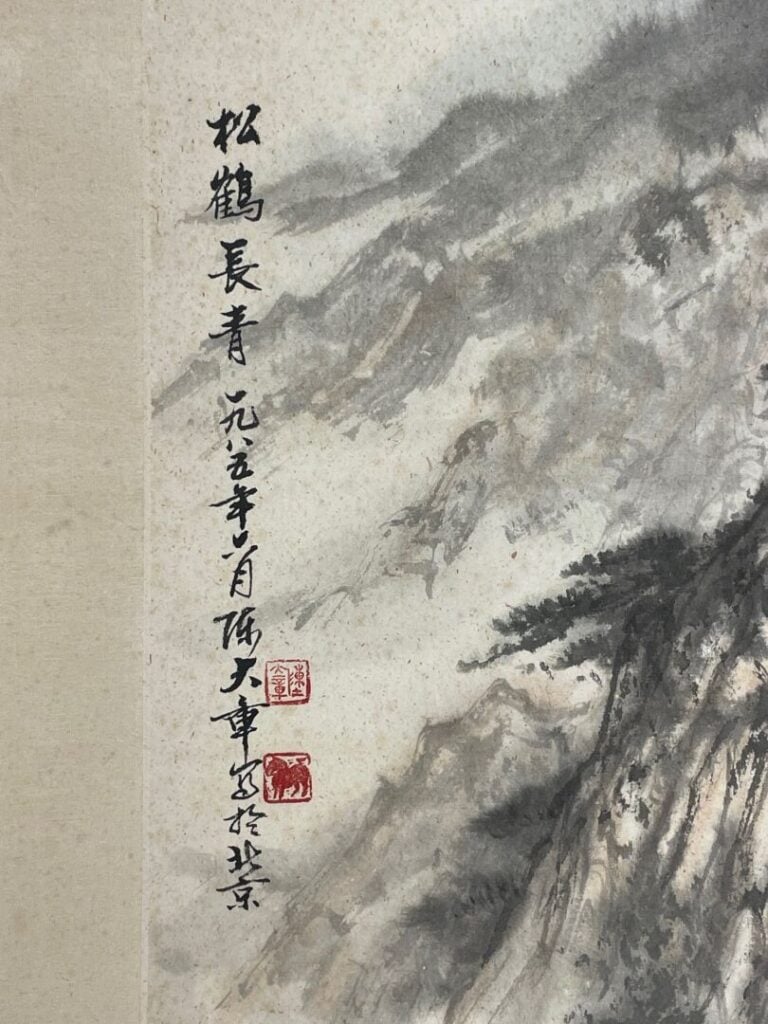 松鶴長青一九八五年六月陈大章写於北京
陳大章